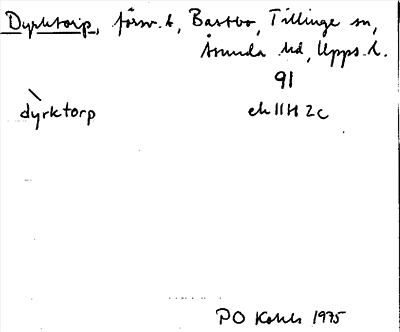 Dyrktorp, försv. t, Bastbo, Tillinge sn,
Åsunda hd, Upps. l.
91
dỳrktorp ek 11H 2c
PO 1975